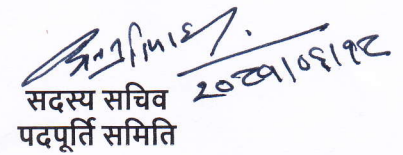 २०८१।०६।१८
सदस्य सचिव
पदपूर्ति समिति